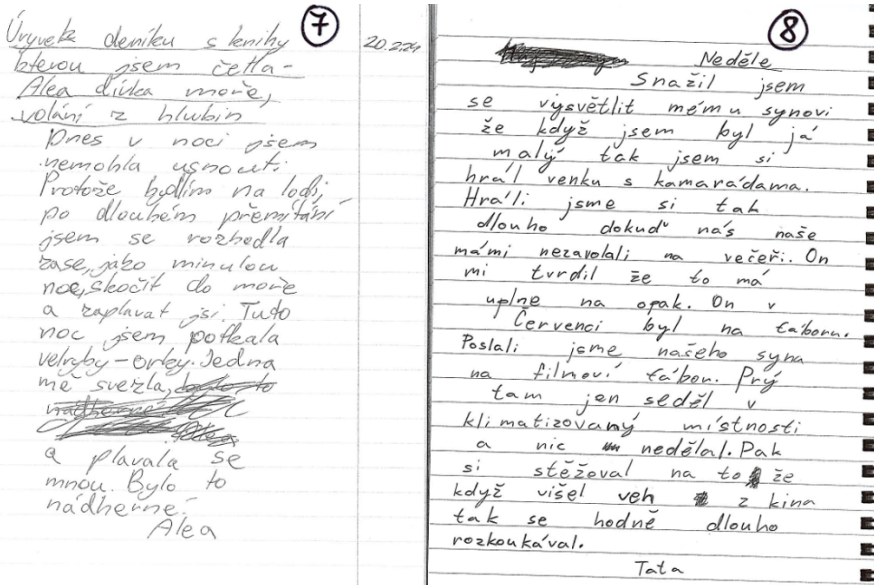 7
Úryvek deníku s knihy
kterou jsem četla-
Alea dívka moře,
volání z hlubin
20.2.24
Dnes v noci jsem
nemohla usnouti.
Protože bydlím na lodi,
po dlouhém přemítání
jsem se rozhodla
zase, jako minulou
noc, skočit do moře
a zaplavat si. Tuto
noc jsem potkala
velryby-orky. Jedna
mě svezla,
a plavala se
mnou. Bylo to
nádherné.
Alea
8
Neděle
Snažil jsem
se výsvětlit mému synovi
že když jsem byl já
malý tak jsem si
hrál venku s kamarádama.
Hráli jsme si tak
dlouho dokuď nás naše
mámi nezavolali na večeři. On
mi tvrdil že to má
uplne na opak. On v
Červenci byl na táboru.
Poslali jsme našeho syna
na filmoví tábor. Prý
tam jen seděl v
klimatizovaný místnosti
a nic nedělal. Pak
si stěžoval na to že
když višel veh z kina
tak se hodně dlouho
rozkoukával.
Tata